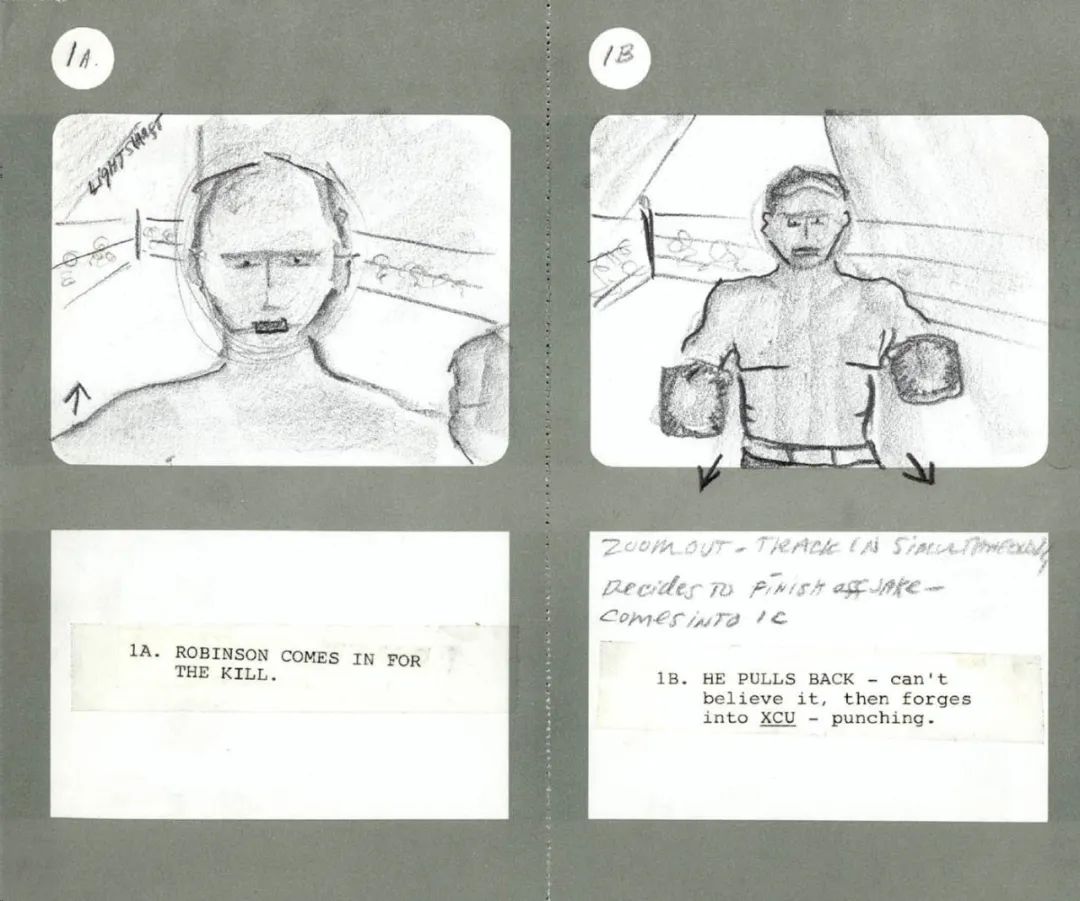 1A.
LIGHTS
1A. ROBINSON COMES IN FOR
THE KILL.
1B
ZOOM OUT - TRACK IN SIMULTANEOUSLY
Decides TO FINISH off JAKE -
COMES INTO 1C
1B. HE PULLS BACK - can't
believe it, then forges
into XCU - punching.